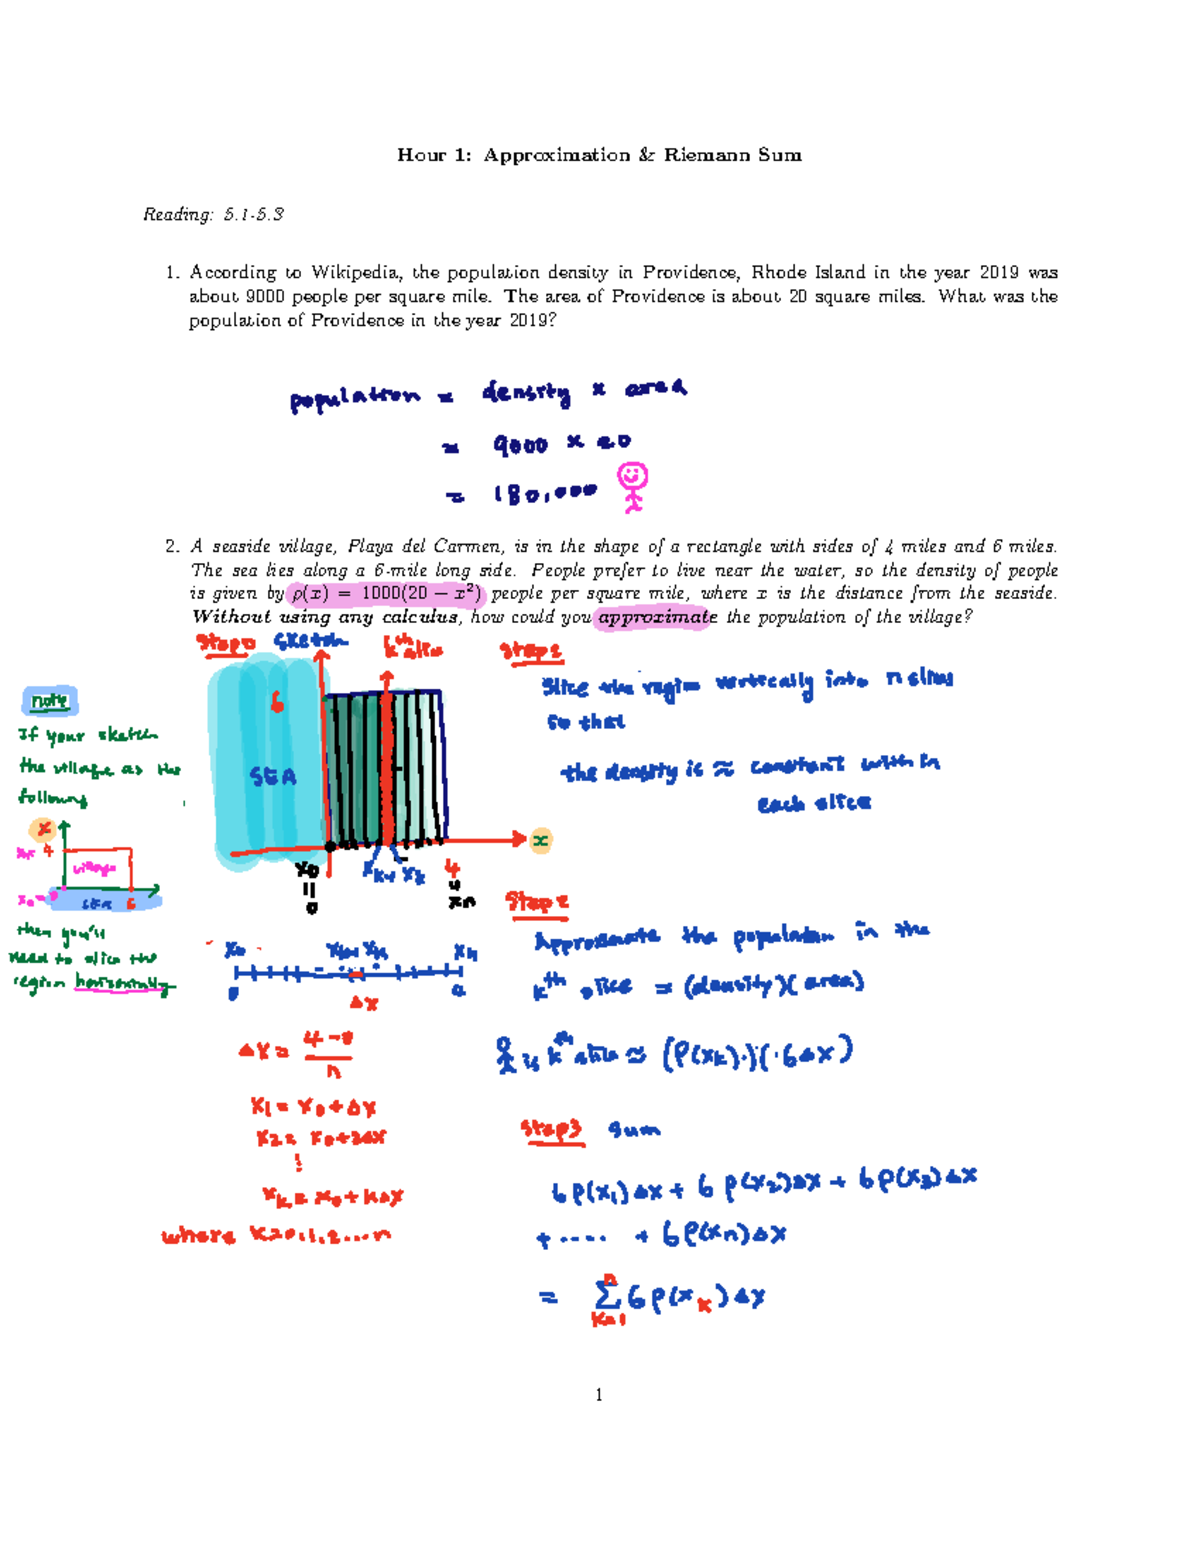 Hour 1: Approximation & Riemann Sum
Reading: 5.1-5.3
1. According to Wikipedia, the population density in Providence, Rhode Island in the year 2019 was
about 9000 people per square mile. The area of Providence is about 20 square miles. What was the
population of Providence in the year 2019?
population = density × area
= 9000 × 20
= 180,000
2. A seaside village, Playa del Carmen, is in the shape of a rectangle with sides of 4 miles and 6 miles.
The sea lies along a 6-mile long side. People prefer to live near the water, so the density of people
is given by ρ(x) = 1000(20 − x²) people per square mile, where x is the distance from the seaside.
Without using any calculus, how could you approximate the population of the village?
Step0 sketch
kth slice
6
SEA
x
x0 = 0
xk-1 xk
4 = xn
note
If your sketch
the village as the
following
x
xn = 4
village
x0 = 0
SEA 6
then you'll
need to slice the
region horizontally
x0 xk-1 xk xn
0 Δx 4
Δx = (4-0)/n
x1 = x0 + Δx
x2 = x0 + 2Δx
⋮
xk = x0 + kΔx
where k=0,1,2...n
Step1
Slice the region vertically into n slices
so that
the density is ≈ constant with in
each slice
Step2
Approximate the population in the
kth slice = (density)(area)
is kth slice ≈ (ρ(xk)·)(·6Δx)
Step3 sum
6ρ(x1)Δx + 6ρ(x2)Δx + 6ρ(x3)Δx
+ .... + 6ρ(xn)Δx
= Σ n k=1 6ρ(xk)Δx
1